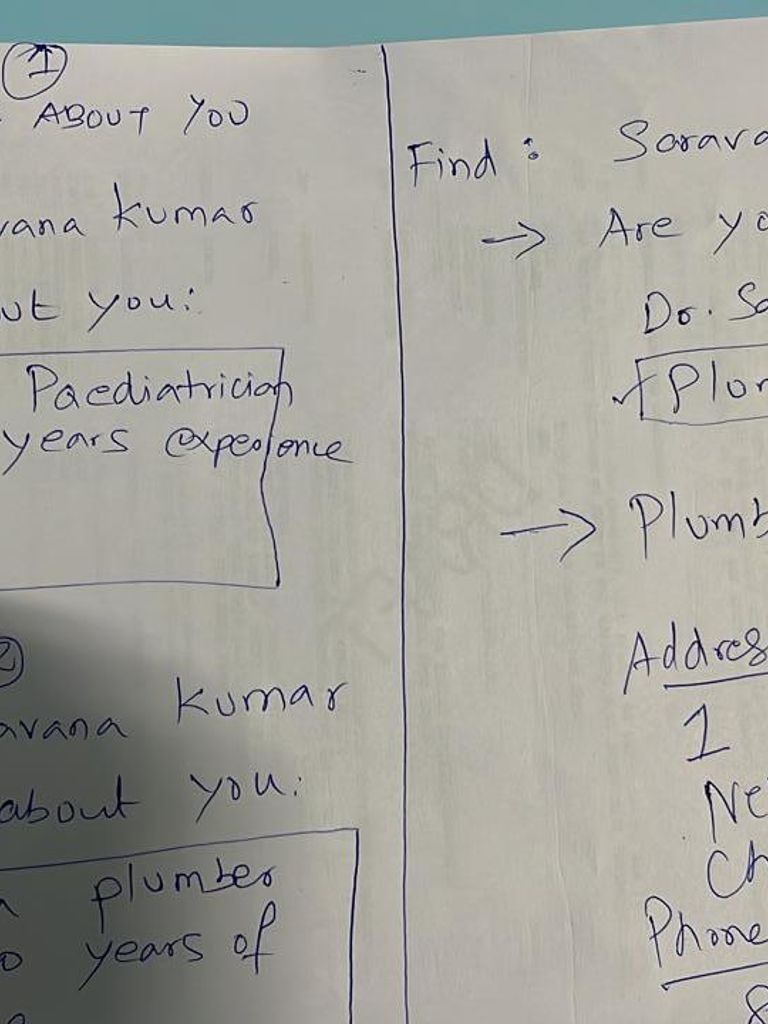 1
ABOUT YOU
vana kumar
ut you:
Paediatrician
years experience
2
avana kumar
about you:
plumber
years of
Find : Sarava
→ Are yo
Dr. Sa
✓ Plum
→ Plumb
Addres
1
Ne
Ch
Phone
8